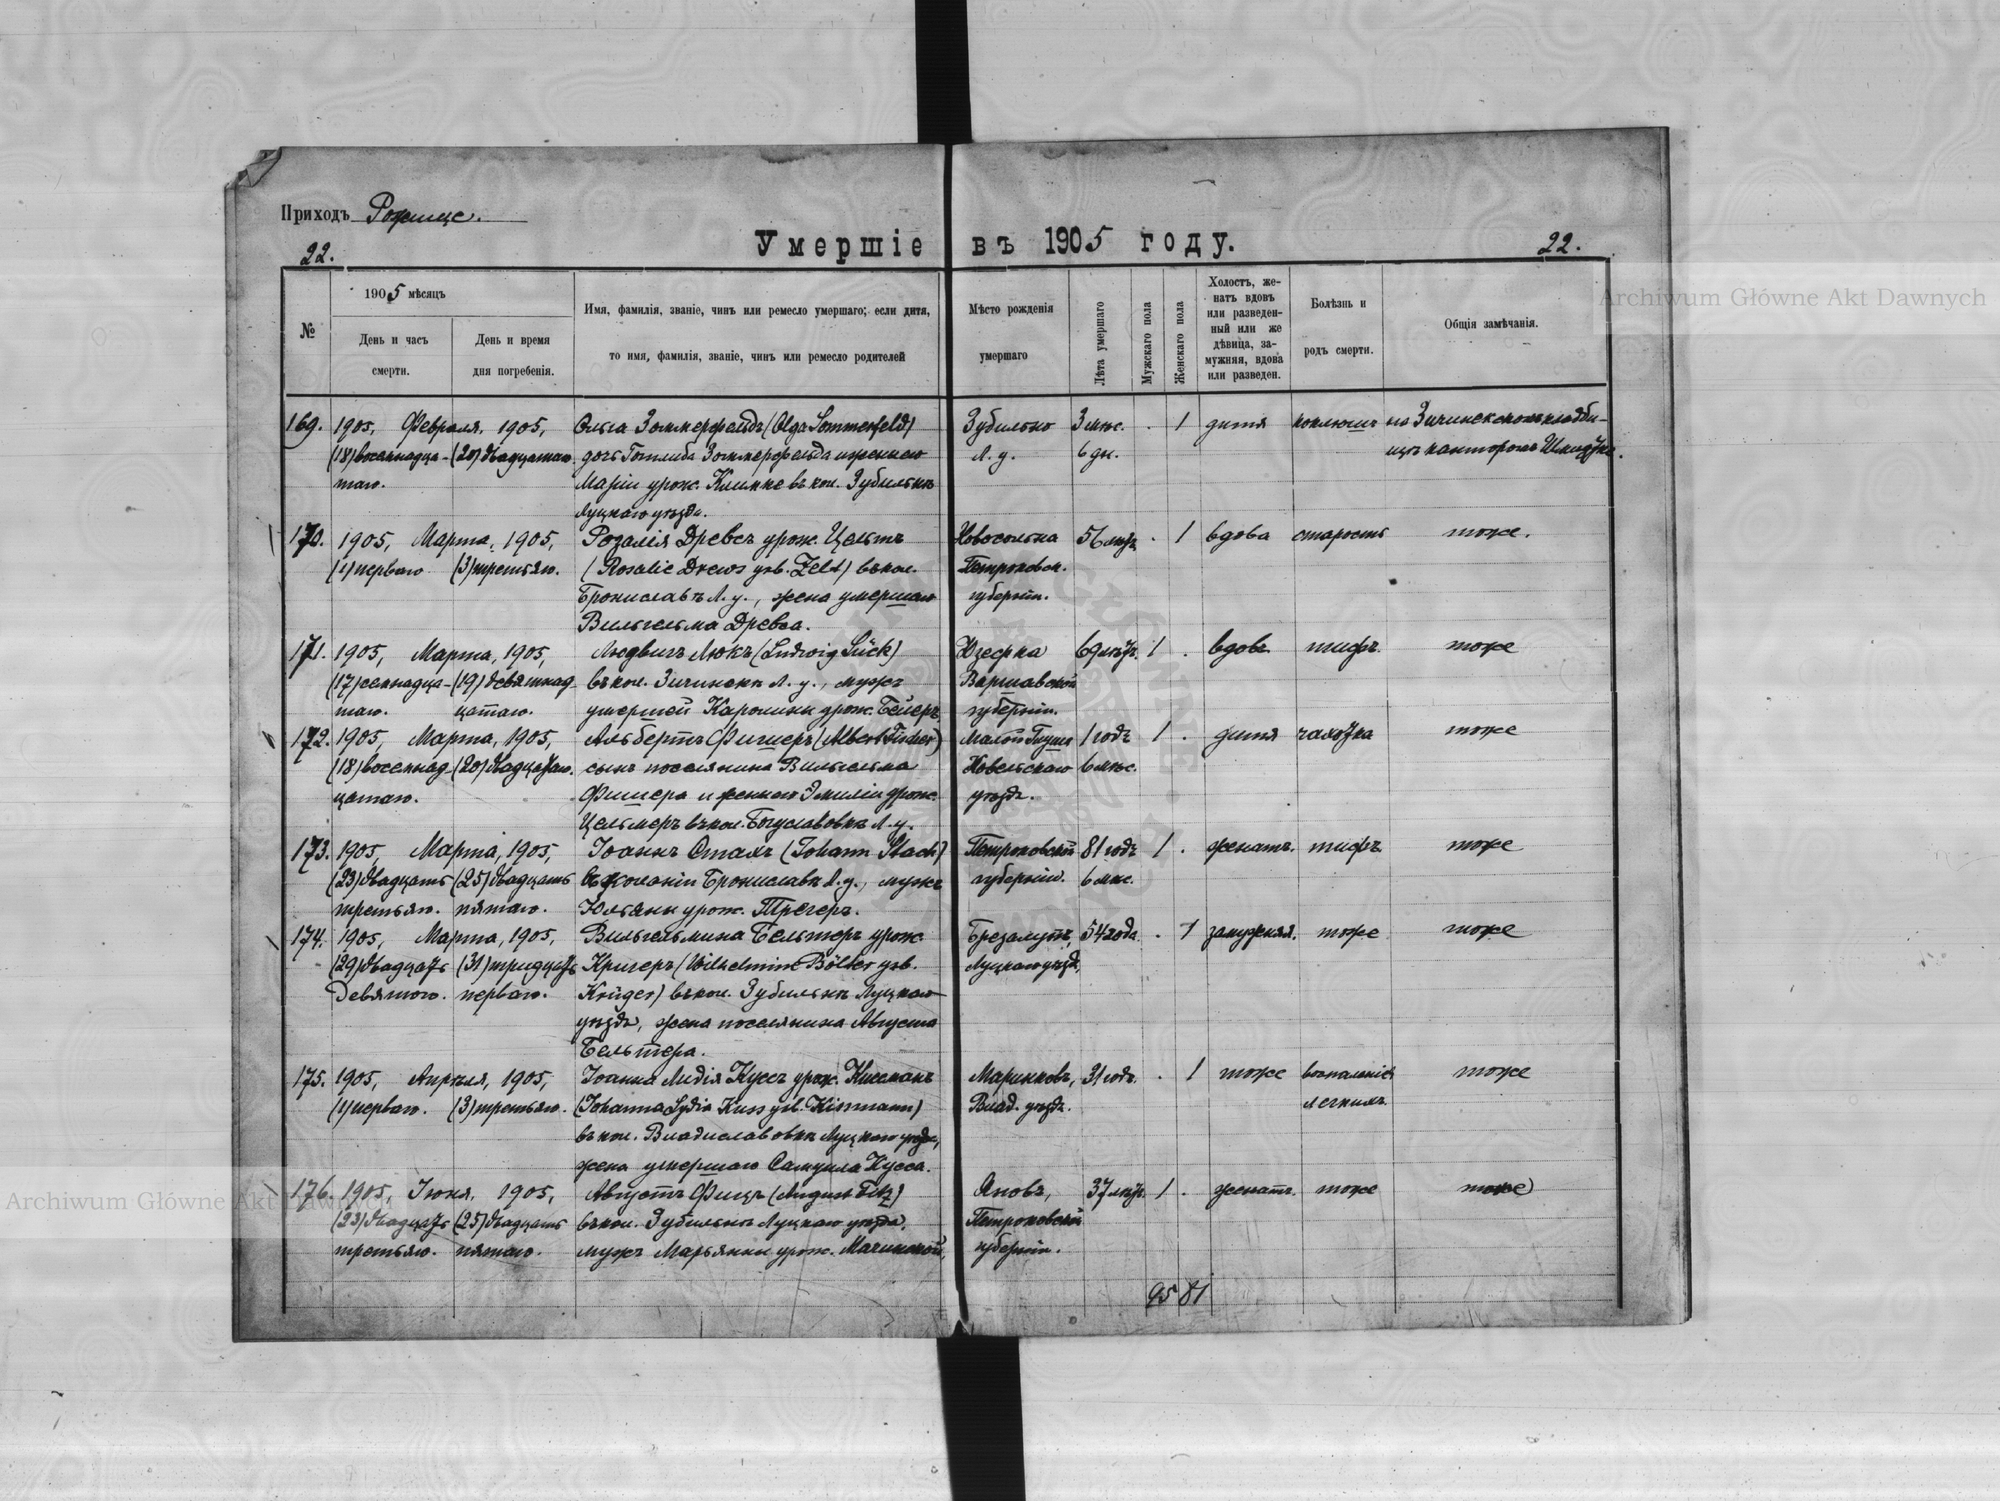 Приходъ Рожище.
22.
Умершіе въ 1905 году.
22.
№
1905 мѣсяцъ
День и часъ смерти.
День и время дня погребенія.
Имя, фамилія, званіе, чинъ или ремесло умершаго; если дитя,
то имя, фамилія, званіе, чинъ или ремесло родителей
Мѣсто рожденія
умершаго
Лѣта умершаго
Мужскаго пола
Женскаго пола
Холостъ, же-
натъ вдовъ
или разведен-
ный или же
дѣвица, за-
мужняя, вдова
или разведен.
Болѣзнь и
родъ смерти.
Общія замѣчанія.
169. 1905, Февраля, 1905, Ольга Зоммерфельдъ (Olga Sommerfeld) Зубильно 3 мѣс. . 1 дитя коклюшъ на Зичинскомъ кладби-
(18) восемнадца- (20) двадцатаго. дочь Готлиба Зоммерфельда и жены его Л. у. 6 дн. щѣ канторомъ
таго. Маріи урож. Климке въ кол. Зубильнѣ
Луцкаго уѣзда.
170. 1905, Марта, 1905, Розалія Древсъ урож. Цельтъ Новосольна 56 лѣтъ . 1 вдова старость тоже.
(1) перваго (3) третьяго. (Rosalie Drews geb. Zelt) въ кол. Петроковск.
Брониславѣ Л. у., жена умершаго губерніи.
Вильгельма Древса.
171. 1905, Марта, 1905, Людвигъ Люкъ (Ludwig Lück) 69 лѣтъ. 1 . вдовъ. тифъ. тоже
(17) семнадца- (19) девятнад- въ кол. Зичинекъ Л. у., мужъ Варшавской
таго. цатаго. умершей Каролины урож. Бейеръ. губерніи.
172. 1905, Марта, 1905, Альбертъ Фишеръ (Albert Fischer) Малой Глуши 1 годъ 1 . дитя чахотка тоже
(18) восемнад- (20) двадцатаго. сынъ поселянина Вильгельма Ковельскаго 6 мѣс.
цатаго. Фишера и жены его Эмиліи урож. уѣзда.
Цельмеръ въ кол. Богуславовкѣ Л. у.
173. 1905, Марта, 1905, Іоаннъ Стахъ (Johann Stach) Петроковской 81 годъ 1 . женатъ. тифъ. тоже
(23) двадцать (25) двадцать въ колоніи Брониславѣ Л. у., мужъ губерніи. 6 мѣс.
третьяго. пятаго. Юльяны урож. Трегеръ.
174. 1905, Марта, 1905, Вильгельмина Бельтеръ урож. 54 года . 1 замужняя. тоже тоже
(29) двадцать (31) тридцать Кригеръ (Wilhelmine Bölter geb. Луцкаго уѣзда,
девятого. перваго. Krüger) въ кол. Зубильнѣ Луцкаго
уѣзда, жена поселянина Августа
Бельтера.
175. 1905, Апрѣля, 1905, Іоанна Лидія Куссъ урож. Кисманъ 31 годъ. . 1 тоже воспаленіе тоже
(1) перваго. (3) третьяго. (Johanna Lydia Kuss geb. Kissmann) Влад. уѣзда. легкихъ.
въ кол. Владиславовкѣ Луцкаго уѣзда,
жена умершаго Самуила Кусса.
176. 1905, Іюня, 1905, Августъ Фицъ (August Fitz) Яновъ, 37 лѣтъ. 1 . женатъ. тоже тоже
(23) двадцать (25) двадцать въ кол. Зубильнѣ Луцкаго уѣзда, Петроковской
третьяго. пятаго. мужъ Марьянны урож. Мачинской, губерніи.
95 81
Archiwum Główne Akt Dawnych
Archiwum Główne Akt Dawnych